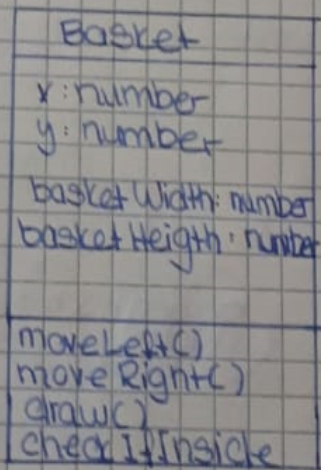 Basket
x: number
y: number
basketWidth: number
basketHeigth: number
moveLeft()
moveRight()
draw()
checkIfInside